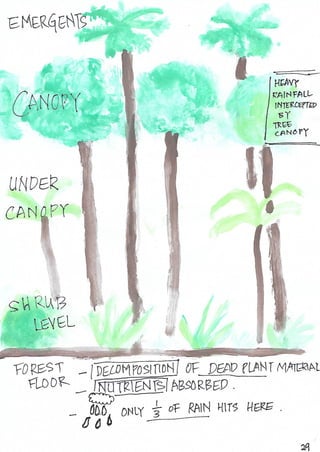 EMERGENTS
CANOPY
HEAVY
RAINFALL
INTERCEPTED
BY
TREE
CANOPY
UNDER
CANOPY
SHRUB
LEVEL
FOREST
FLOOR
- DECOMPOSITION OF DEAD PLANT MATERIAL
- NUTRIENTS ABSORBED.
- ONLY 1/3 OF RAIN HITS HERE.
29